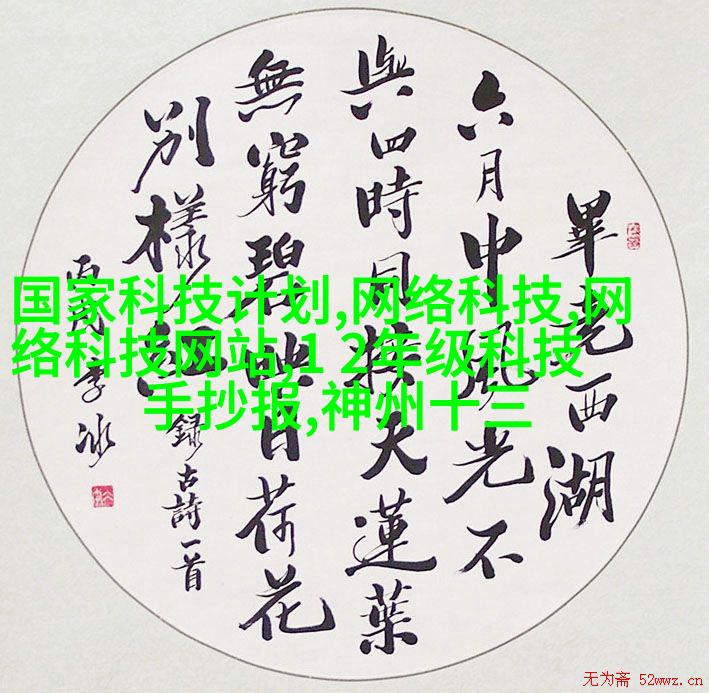 畢竟西湖
六月中風光不
與四時同接天蓮葉
無窮碧映日荷花
別樣紅
錄古詩一首
李冰
国家科技计划,网络科技,网
络科技网站,1 2年级科技
手抄报,神州十三
无为斋 52wwz.cn